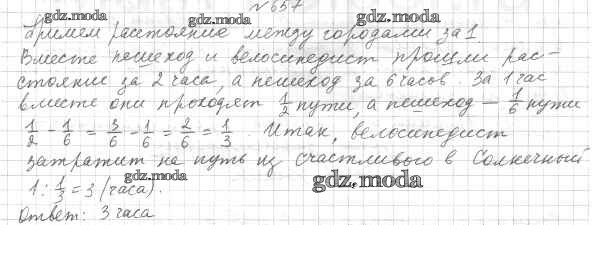 № 657
Примем расстояние между городами за 1
Вместе пешеход и велосипедист прошли рас-
стояние за 2 часа, а пешеход за 6 часов. За 1 час
вместе они проходят 1/2 пути, а пешеход – 1/6 пути
1/2 - 1/6 = 3/6 - 1/6 = 2/6 = 1/3. Итак, велосипедист
затратит на путь из счастливого в Солнечный
1 : 1/3 = 3 (часа).
Ответ: 3 часа
gdz.moda
gdz.moda
gdz.moda
gdz.moda
gdz.moda
gdz.moda